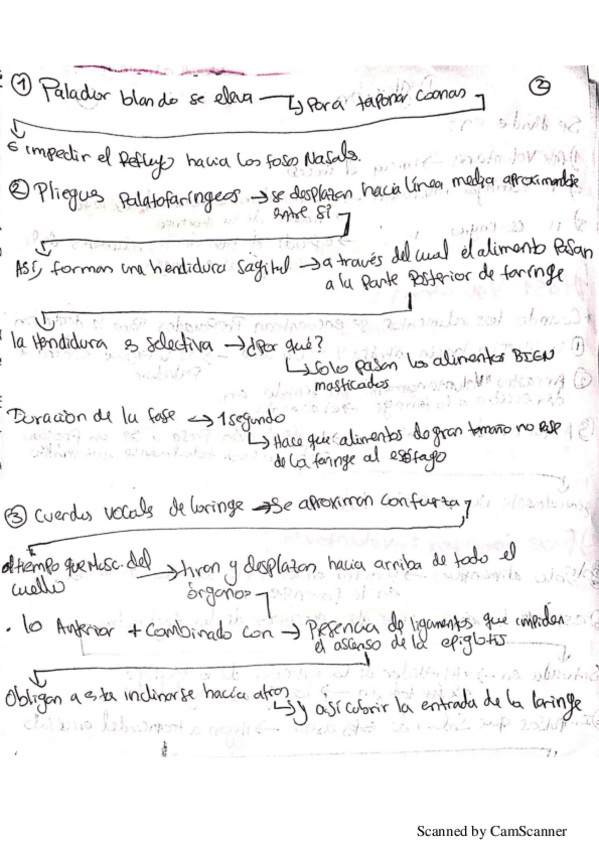 ① Paladar blando se eleva → para taponar coanas ②
e impedir el Reflujo hacia las fosas Nasales.
② Pliegues palatofaríngeos → se desplazan hacia línea media aproximandose
entre sí
Así, forman una hendidura sagital → a través del cual el alimento pasan
a la parte posterior de faringe
la Hendidura es selectiva → ¿Por qué?
↳ Solo pasan los alimentos BIEN
masticados
Duración de la fase → 1 segundo
↳ Hace que alimentos de gran tamaño no pase
de la faringe al esófago
③ Cuerdas vocales de laringe → Se aproximan con fuerza
al tiempo que Musc. del
cuello → tiran y desplazan hacia arriba de todo el
órgano
. lo Anterior + combinado con → Presencia de ligamentos que impiden
el ascenso de la epiglotis
Obligan a esta inclinarse hacia atras
↳ y así cubrir la entrada de la laringe
Scanned by CamScanner